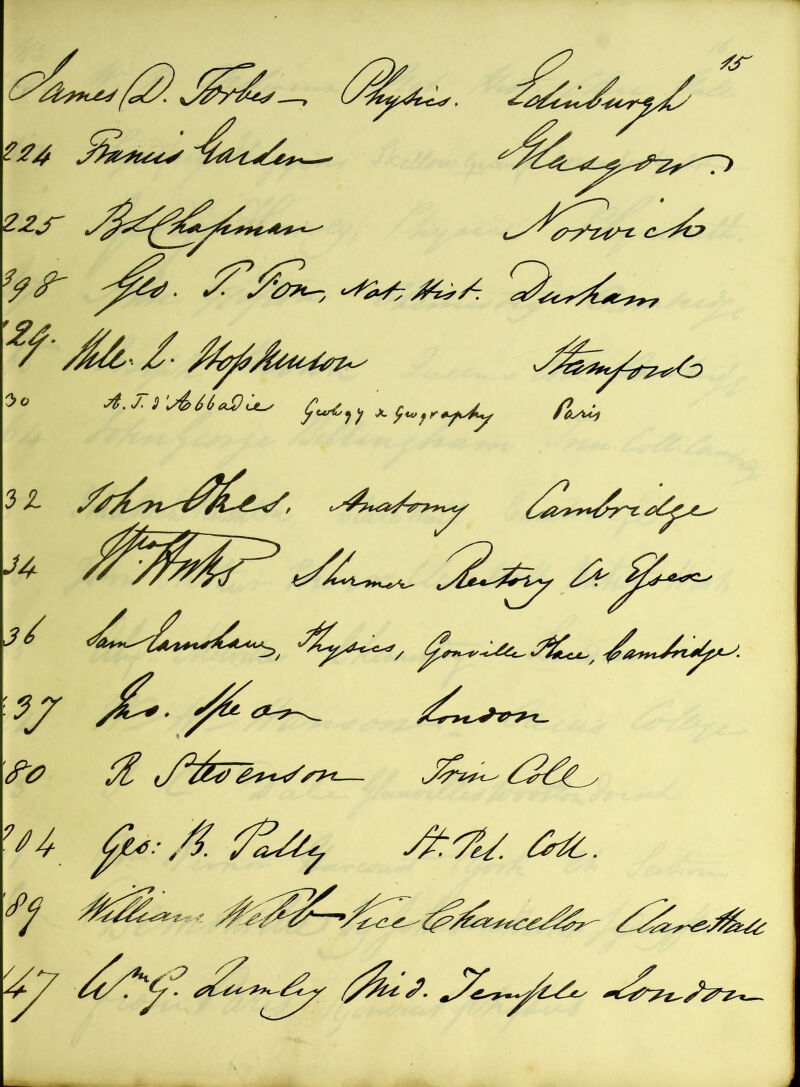 15
James D. Forbes — Physics. Edinburgh
224 Francis Garden Glasgow.
225 B L Chapman Norwich
398 Geo. T. Fox, Nat. Hist. Durham
29. L. Hopkinson Stamford
30 A. T. d'Abbadie Geology & Geography Paris
32 John Okes. Anatomy Cambridge
34 Wm Hicks Sturmer Rectory Essex
36 Sam Earnshaw, Physics, Gonville Place, Cambridge.
37 Jno. Spear London
80 R Stevenson Trin Coll
204 Geo: B. St. Pet. Coll.
89 William Webb Vice Chancellor Clare Hall
47 Wm G. Lumley Mid. Temple London